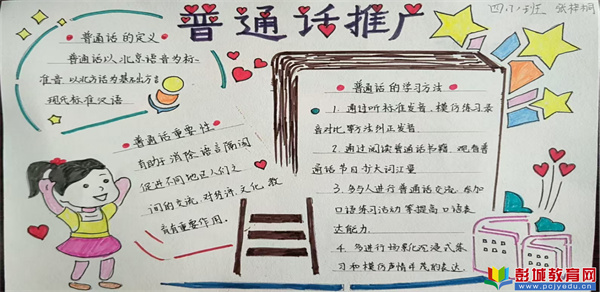 普通话推广
四(1)班 张梓桐
普通话的定义
普通话以北京语音为标
准音 以北方话为基础方言
现代标准汉语
普通话重要性
有助于消除语言隔阂
促进不同地区人们之
间的交流,对经济、文化、教
育有重要作用。
普通话的学习方法
1.通过听标准发音、模仿练习录
音对比等方法纠正发音
2.通过阅读普通话书籍、观看普
通话节目扩大词汇量
3.多与人进行普通话交流,参加
口语练习活动 掌提高口语表
达能力.
4.多进行场景化沉浸式练
习和模仿声情并茂的表达.
彭城教育网
www.pcjyedu.cn